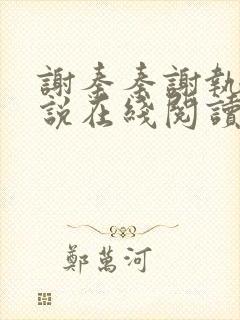 謝奎奎謝執
說在綫閱讀
鄭萬河